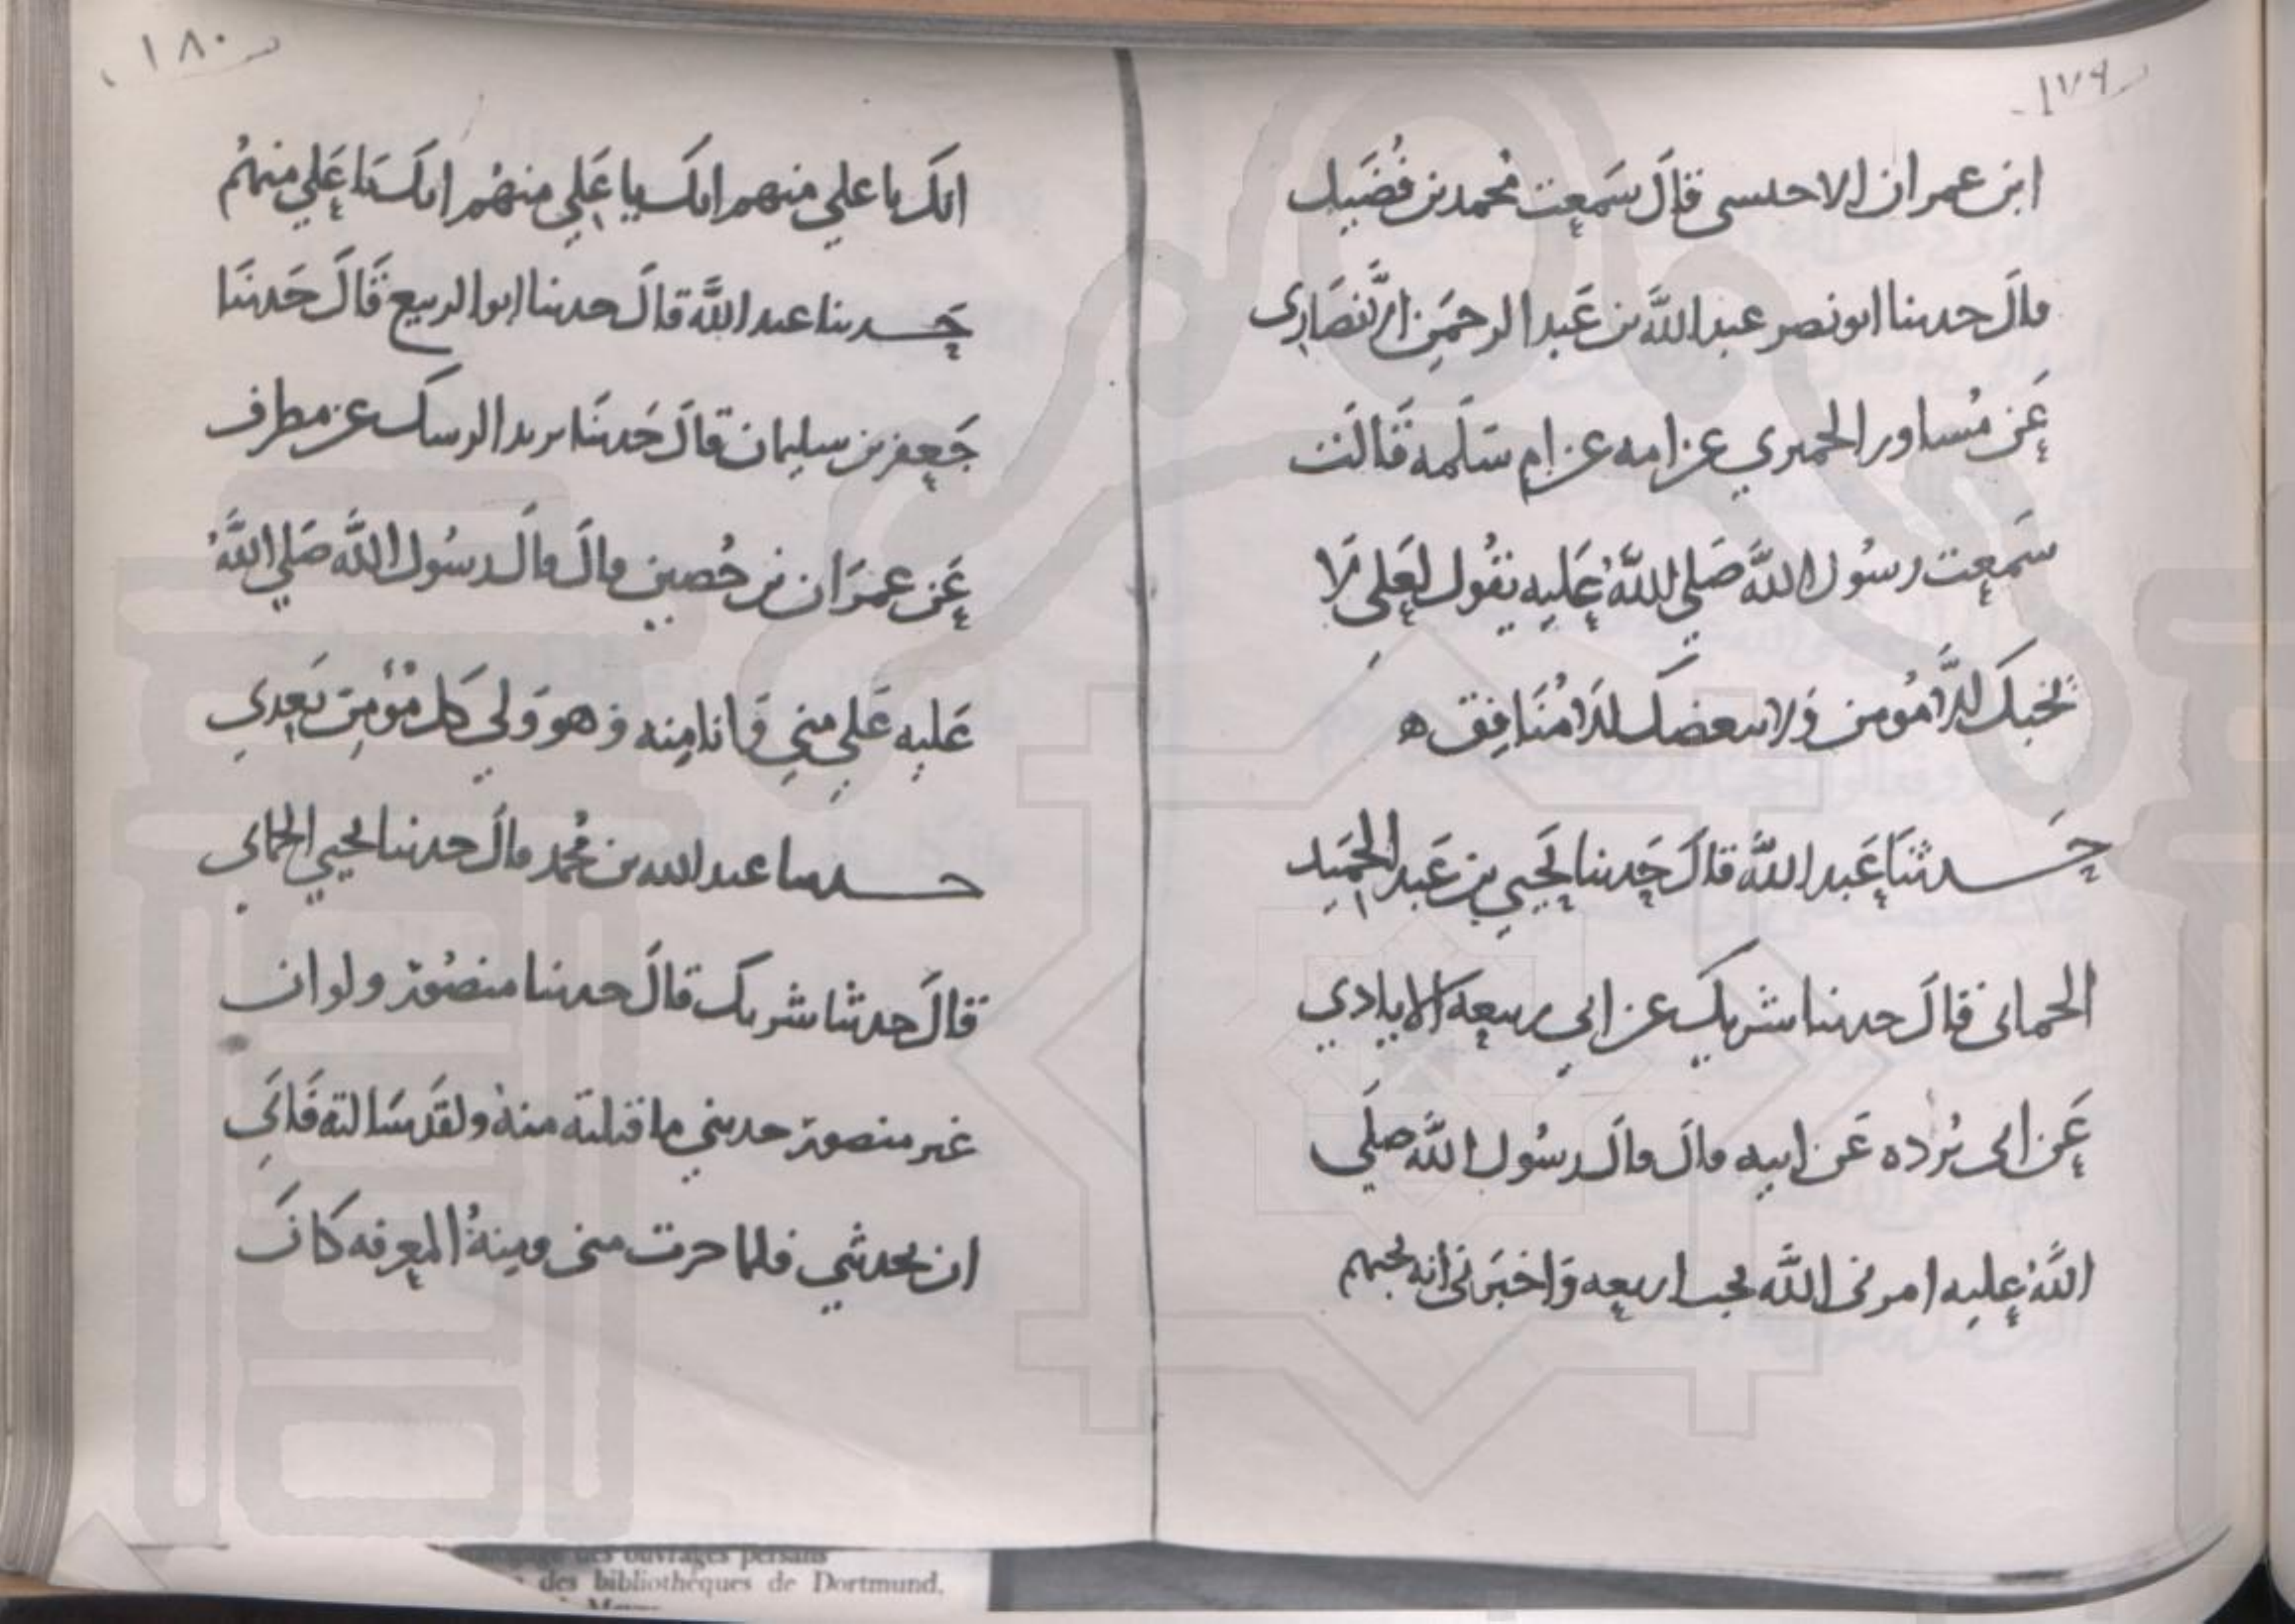 ١٧٩
ابن عمران الاحمسي قالَ سَمِعت مُحمد بن فُضَيل
قالَ حدثنا ابو نصر عبد اللَّه بن عَبد الرحمَن الانصَاري
عَن مُساور الحميري عن امه عن ام سَلَمه قَالَت
سَمِعت رسُول اللَّه صَلي اللَّهُ عَليه يقُول لعَلي لا
يحبكَ الا مُومن وَلا يبغضك الا مُنَافِق ه
حَدثنَا عَبد اللَّه قالَ حَدثنا يَحيي بن عَبد الحمَيد
الحماني قالَ حدثنا شريك عن ابي ربيعه الايادي
عَن ابي بُرده عَن ابيه قالَ قالَ رسُول اللَّه صلَي
اللَّهُ عليه امرني اللَّه بحب اربعه وَاخبَرني انه يحبهم
١٨٠
انكَ يا علي منهم انكَ يا عَلي منهُم انكَ يَا عَلي منهُم
حَدثنا عبد اللَّه قالَ حدثنا ابو الربيع قَالَ حَدثنَا
جَعفر بن سليمان قالَ حَدثنَا يزيد الرشك عن مطرف
عَن عمرَان بن حُصين قالَ قالَ رسُول اللَّه صَلي اللَّهُ
عَليه عَلي مني وَانا مِنه وَ هو وَلي كل مُؤمِن بَعدي
حدثنا عبد الله بن مُحمد قالَ حدثنا يحيي الحماني
قالَ حدثنا شريك قالَ حدثنا منصُور ولو ان
غير منصور حدثني ما قبلته منهُ ولقَد سَالته فَابَي
ان يحدثني فلما جرت مني وبينهُ المعرفه كانَ
des ouvrages persans
des bibliothèques de Dortmund,